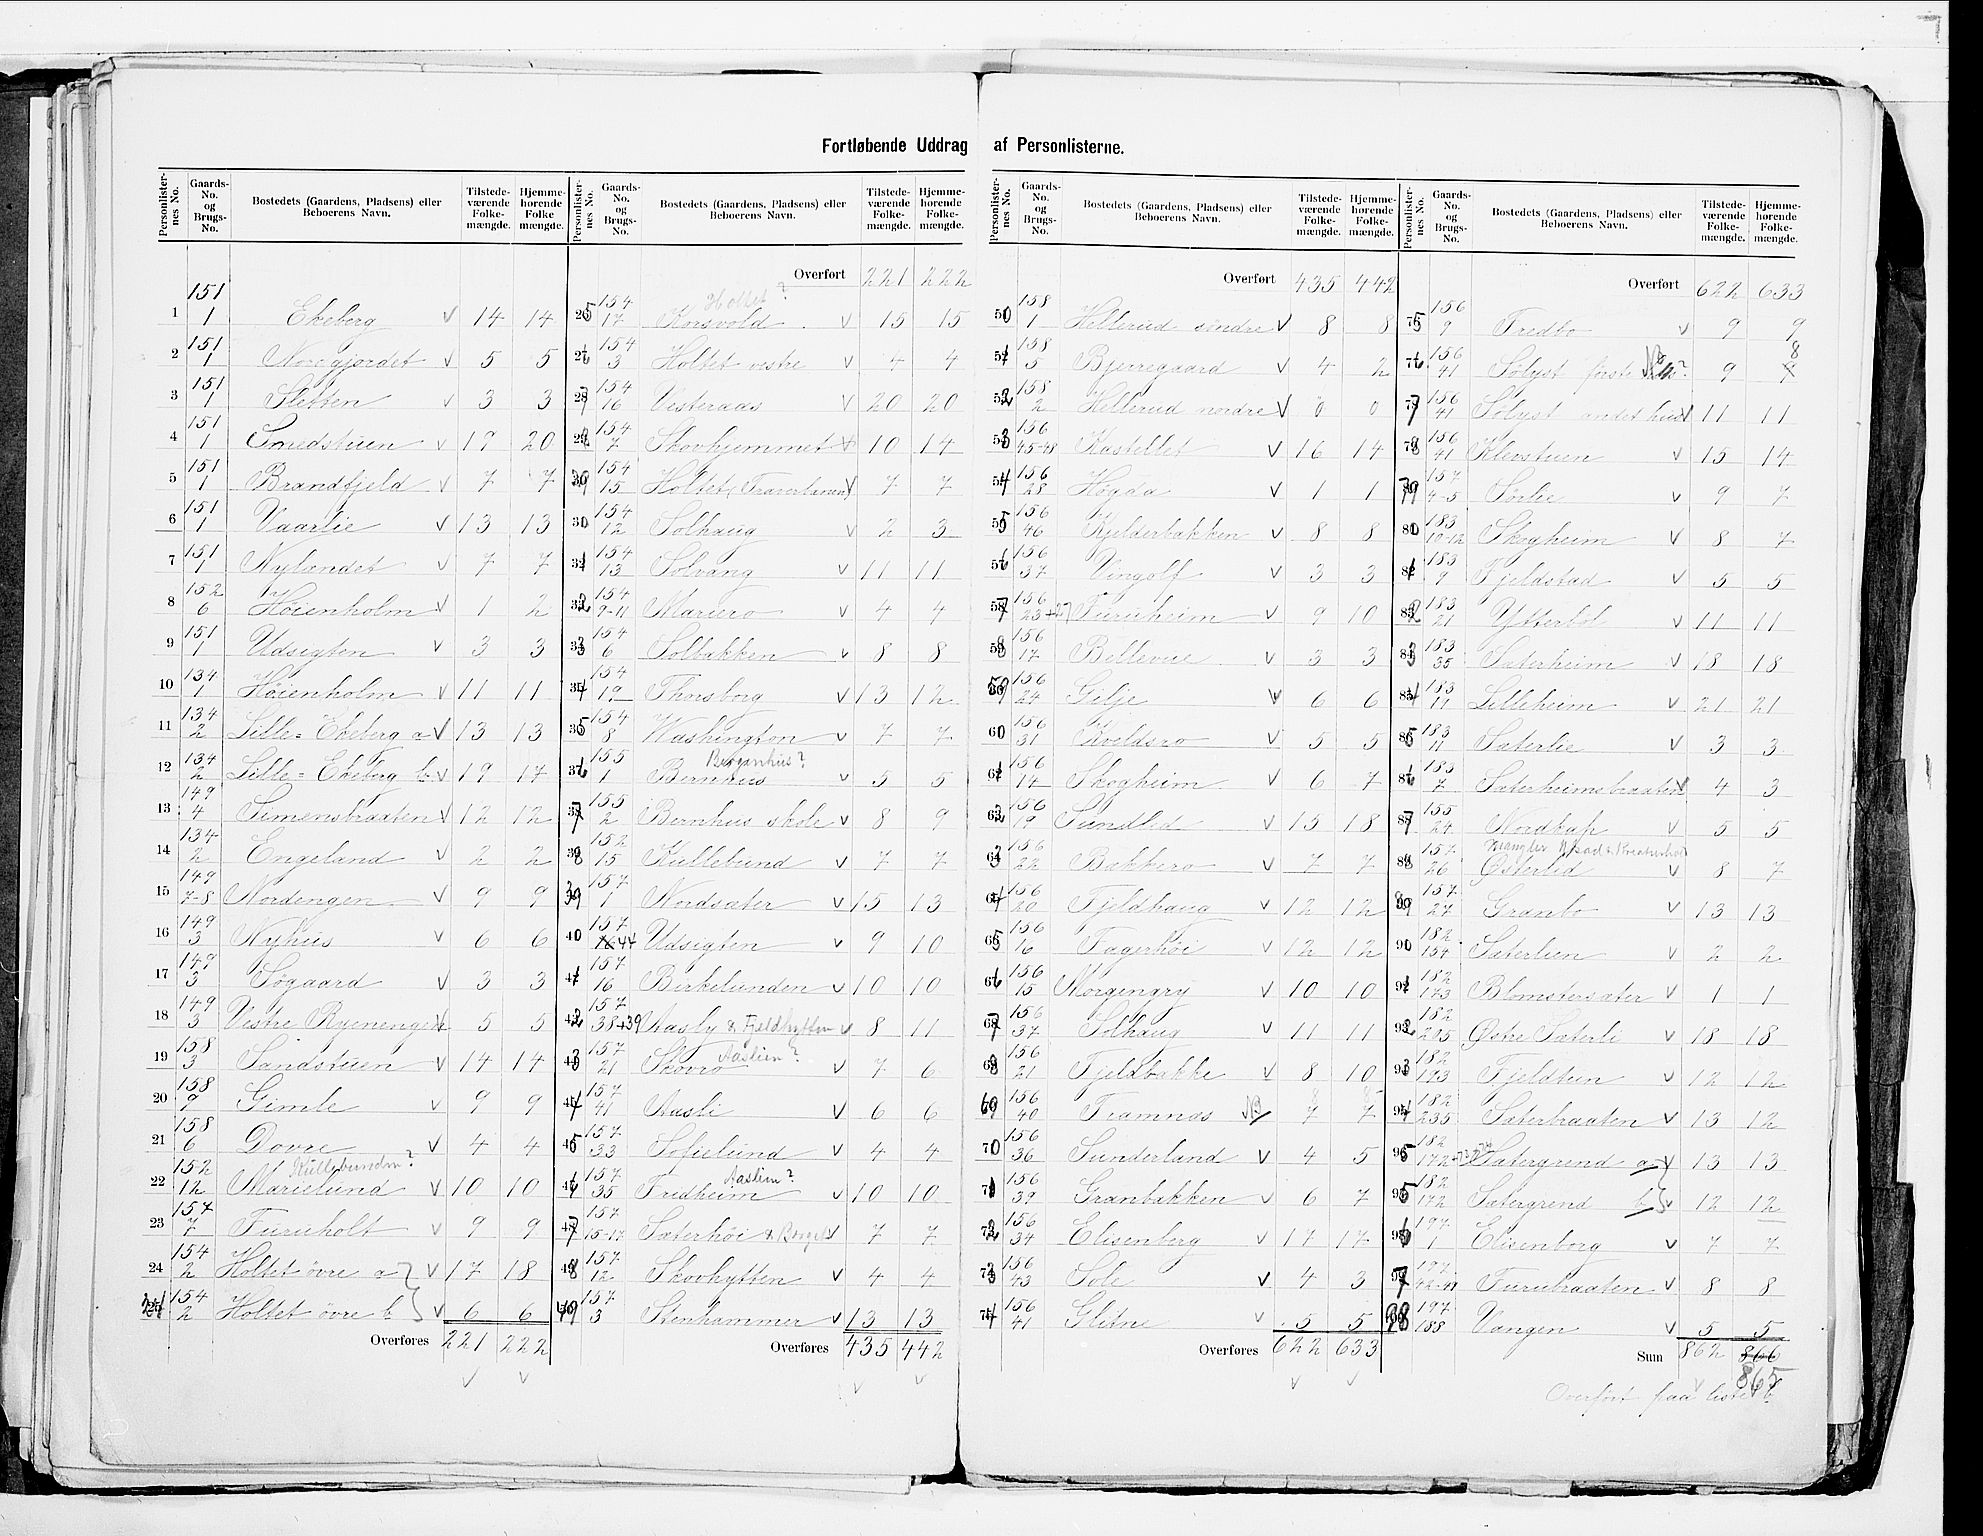 Fortløbende Uddrag af Personlisterne.
Personlisternes No. Gaards-No. og Brugs-No. Bostedets (Gaardens, Pladsens) eller Beboerens Navn. Tilstedeværende Folkemængde. Hjemmehørende Folkemængde.
1 151/1 Ekeberg v 14 14
2 151/1 Nordgjordet v 5 5
3 151/1 Sletten v 3 3
4 151/1 Smedstuen v 19 20
5 151/1 Brandfjeld v 7 7
6 151/1 Vaarlie v 13 13
7 151/1 Nylændet v 7 7
8 152/6 Høienholm v 1 2
9 151/1 Udsigten v 3 3
10 134/1 Høienholm v 11 11
11 134/2 Lille-Ekeberg a v 13 13
12 134/2 Lille-Ekeberg b v 19 17
13 149/4 Simensbraaten v 12 12
14 134/2 Engeland v 2 2
15 149/7-8 Nordengen v 9 9
16 149/3 Nyhus v 6 6
17 149/3 Søgaard v 3 3
18 149/3 Vestre Ryenengen v 5 5
19 158/3 Sandstuen v 14 14
20 158/9 Gimle v 9 9
21 158/6 Dovre v 4 4
Kullebunden?
22 152/12 Marielund v 10 10
23 157/7 Furuholt v 9 9
24 154/2 Holtet øvre a v 17 18
154/2 Holtet øvre b v 6 6
Overføres 221 222
v v
Personlisternes No. Gaards-No. og Brugs-No. Bostedets (Gaardens, Pladsens) eller Beboerens Navn. Tilstedeværende Folkemængde. Hjemmehørende Folkemængde.
Overført 221 222
Holtet?
25 154/17 Korsvold v 15 15
26 154/3 Holtet vestre v 4 4
27 154/16 Vesteraas v 20 20
28 154/7 Skovhjemmet v 10 14
29 154/15 Holtet (Traverbanen) v 7 7
30 154/12 Solhaug v 2 3
31 154/13 Solvang v 11 11
32 154/9-11 Mariero v 4 4
33 154/6 Solbakken v 8 8
34 154/19 Thorsborg v 13 12
35 154/8 Washington v 7 7
Bergenhus?
36 155/1 Bernhus v 5 5
37 155/2 Bernhus skole v 8 9
38 152/15 Kullebund v 7 7
39 157/1 Nordsæter v 15 13
40 157/44 Udsigten v 9 10
41 157/16 Birkelunden v 10 10
42 157/38+39 Aasly & Fjeldhytten v 8 11
Aaslien?
43 157/21 Skovro v 7 6
44 157/41 Aasli v 6 6
45 157/33 Sofielund v 4 4
Aaslien?
46 157/35 Fridheim v 10 10
47 157/15-17 Sæterhøi & Borgen v 7 7
48 157/12 Skovhytten v 4 4
49 157/3 Stenhammer v 13 13
Overføres 435 442
v v
Personlisternes No. Gaards-No. og Brugs-No. Bostedets (Gaardens, Pladsens) eller Beboerens Navn. Tilstedeværende Folkemængde. Hjemmehørende Folkemængde.
Overført 435 442
50 158/1 Hellerud søndre v 8 8
51 158/5 Bjerregaard v 4 2
52 158/2 Hellerud nordre v 0 0
53 156/45-48 Kastellet v 16 14
54 156/28 Høgda v 1 1
55 156/46 Kjelderbakken v 8 8
56 156/37 Vingolf v 3 3
57 156/23+27 Furuheim v 9 10
58 156/17 Bellevue v 3 3
59 156/24 Gilje v 6 6
60 156/31 Kveldsro v 5 5
61 156/14 Skogheim v 6 7
62 156/19 Sundlid v 15 18
63 156/22 Bakkero v 7 7
64 156/20 Fjeldhaug v 12 12
65 156/16 Fagerhøi v 12 12
66 156/15 Morgengry v 10 10
67 156/37 Solhaug v 11 11
68 156/21 Fjeldbakke v 8 10
8 8
69 156/40 Framnæs NB 7 7
70 156/36 Sunderland v 4 5
71 156/39 Granbakken v 6 7
72 156/34 Elisenberg v 17 17
73 156/43 Sole v 4 3
74 156/41 Glitne v 5 5
Overføres 622 633
v v
Personlisternes No. Gaards-No. og Brugs-No. Bostedets (Gaardens, Pladsens) eller Beboerens Navn. Tilstedeværende Folkemængde. Hjemmehørende Folkemængde.
Overført 622 633
75 156/9 Fredbo v 9 9
8
76 156/41 Sølyst første NB 9
77 156/41 Sølyst andet hus v 11 11
78 156/41 Klevstuen v 15 14
79 157/4-5 Sørlie v 9 7
80 183/10-12 Skogheim v 8 7
81 183/9 Fjeldstad v 5 5
82 183/21 Ytterbøl v 11 11
83 183/35 Sæterheim v 18 18
84 183/11 Lilleheim v 21 21
85 183/11 Sæterlie v 3 3
86 183/7 Sæterheimsbraaten v 4 3
87 155/24 Nordkap v 5 5
mangler
88 157/26 Østerlid v 8 7
89 157/27 Granbo v 13 13
90 182/154 Sæterlien v 2 2
91 182/173 Blomstersæter v 1 1
92 182/205 Østre Sæterli v 18 18
93 182/193 Fjeldtun v 12 12
94 182/235 Sæterbraaten v 13 12
95 182/172 Sætergrend a v 13 13
95 182/172 Sætergrend b v 12 12
96 197/1 Elisenborg v 7 7
97 197/42-47 Furubraaten v 8 8
98 197/188 Vangen v 5 5
Sum 862 866
v 865
Overført paa liste 1 b